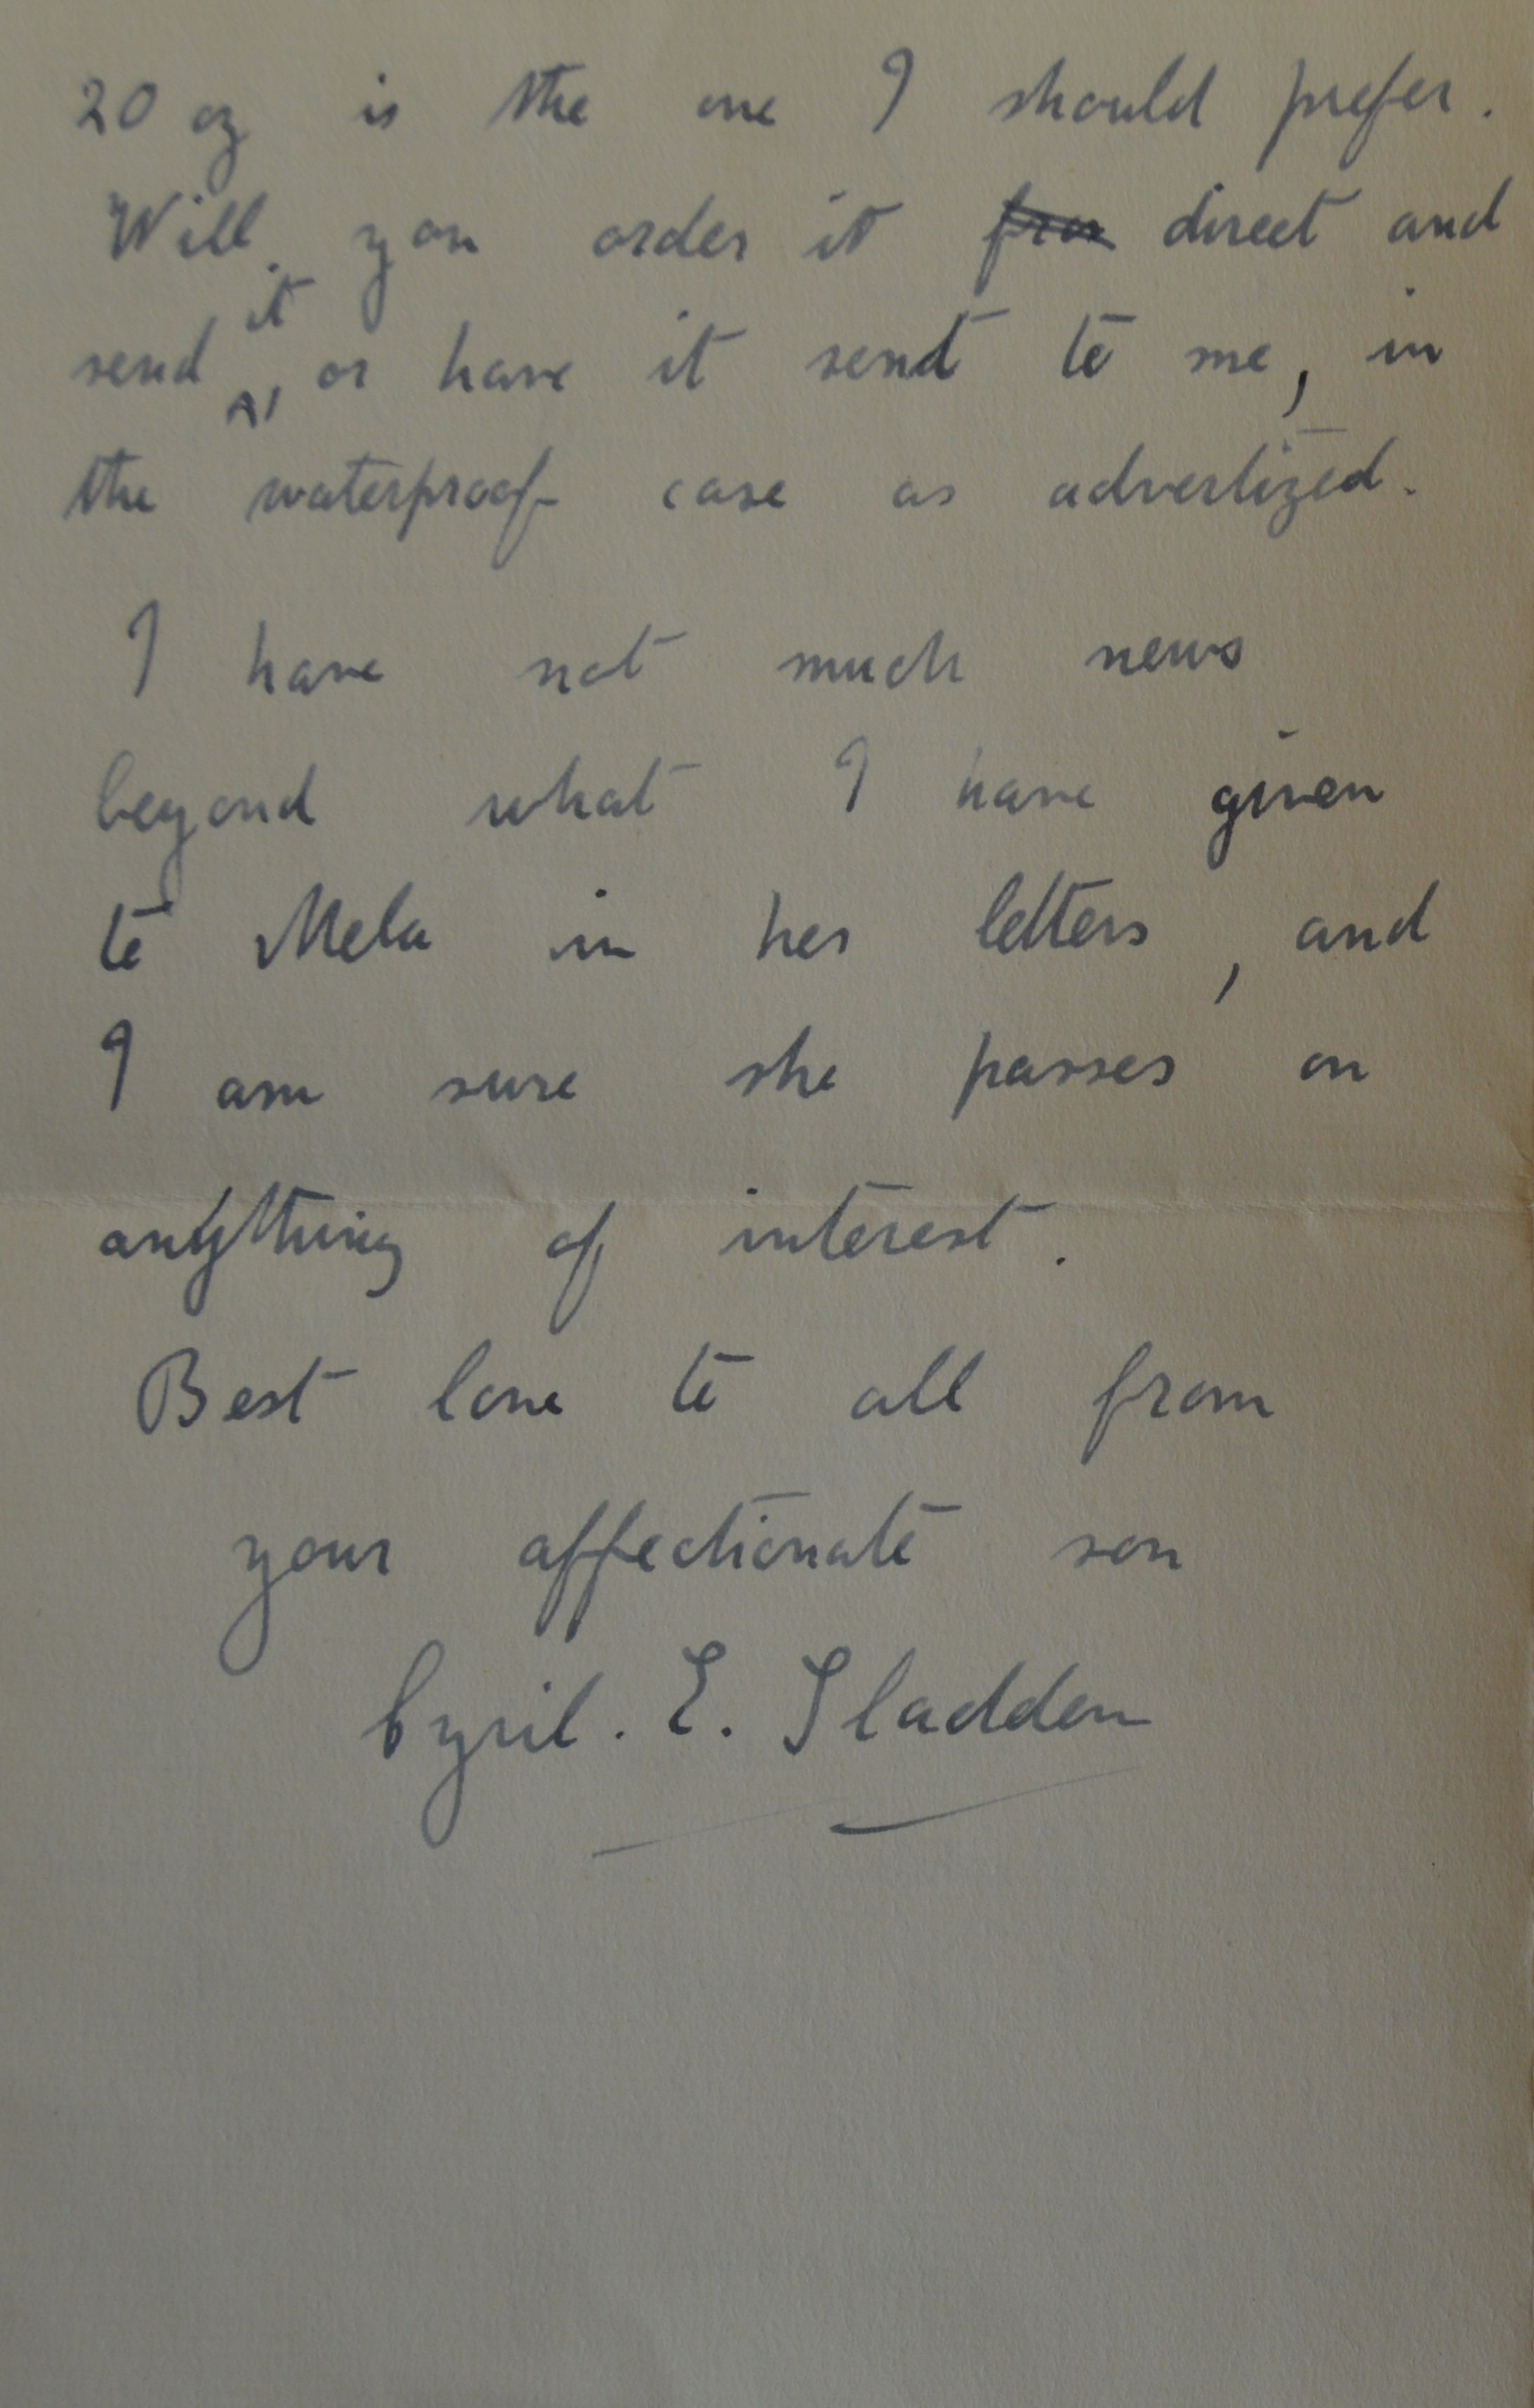 20 oz is the one I should prefer.
Will you order it ~~from~~ direct and
send it, or have it send to me, in
the waterproof case as advertized.
I have not much news
beyond what I have given
to Mela in her letters, and
I am sure she passes on
anything of interest.
Best love to all from
your affectionate son
Cyril. E. Sladden